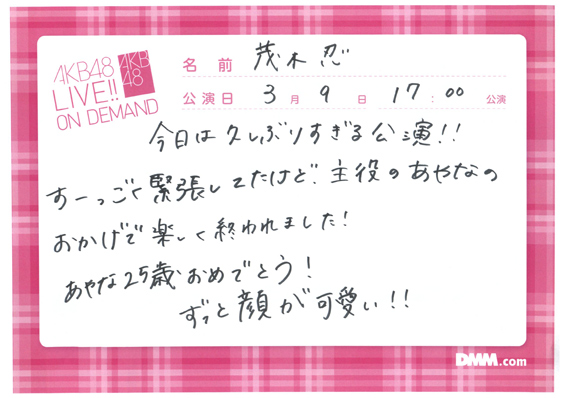 AKB48
LIVE!!
ON DEMAND
AKB
48
名 前 茂木 忍
公演日 3 月 9 日 17:00 公演
今日は久しぶりすぎる公演!!
すーっごく緊張してたけど、主役のあやなの
おかげで楽しく終われました!
あやな25歳おめでとう!
ずっと顔が可愛い!!
DMM.com